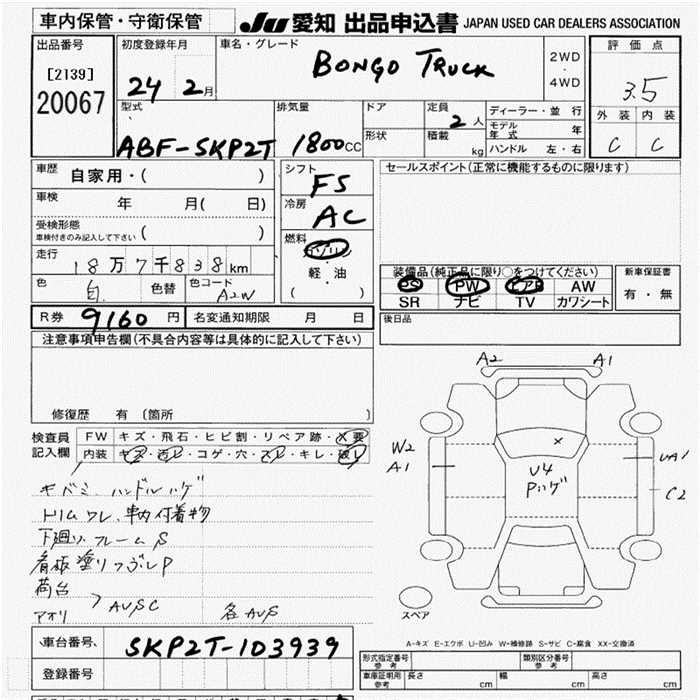 車内保管・守衛保管
JU 愛知 出品申込書 JAPAN USED CAR DEALERS ASSOCIATION
出品番号
[2139]
20067
初度登録年月
24 2月
車名・グレード
BONGO TRUCK
2WD
・
4WD
評価点
3.5
外装 内装
C C
型式
ABF-SKP2T
排気量
1800cc
ドア
形状
定員
2人
積載
kg
ディーラー・並行
モデル年式 年
ハンドル 左・右
車歴
自家用・( )
車検
年 月( 日)
受検形態
車検付きのみ記入して下さい ( )
走行
18万7千838km
色
白
色替
色コード
A2W
シフト
F5
冷房
AC
燃料
ガソリン
軽・油
( )
セールスポイント(正常に機能するものに限ります)
装備品(純正品に限り○をつけてください)
PS PW エアB AW
SR ナビ TV カワシート
新車保証書
有・無
R券 9160円
名変通知期限 月 日
後日品
注意事項申告欄(不具合内容等は具体的に記入して下さい)
修復歴 有 (箇所 )
検査員
記入欄
FW キズ・飛石・ヒビ割・リペア跡・X要
内装 キズ・汚レ・コゲ・穴・スレ・キレ・破レ
キバミ ハンドルハゲ
トリムワレ、車内付着物
下廻り フレームS
看板塗りつぶしP
荷台
アオリ
AUSC
各AUS
A2 A1
W2
A1
U4
Pハゲ
X
UA1
C2
スペア
A-キズ E-エクボ U-凹み W-補修跡 S-サビ C-腐食 XX-交換済
車台番号
SKP2T-103939
登録番号
形式指定番号
参考
類別区分番号
参考
車庫証明用
参考
長さ cm
幅 cm
高さ cm